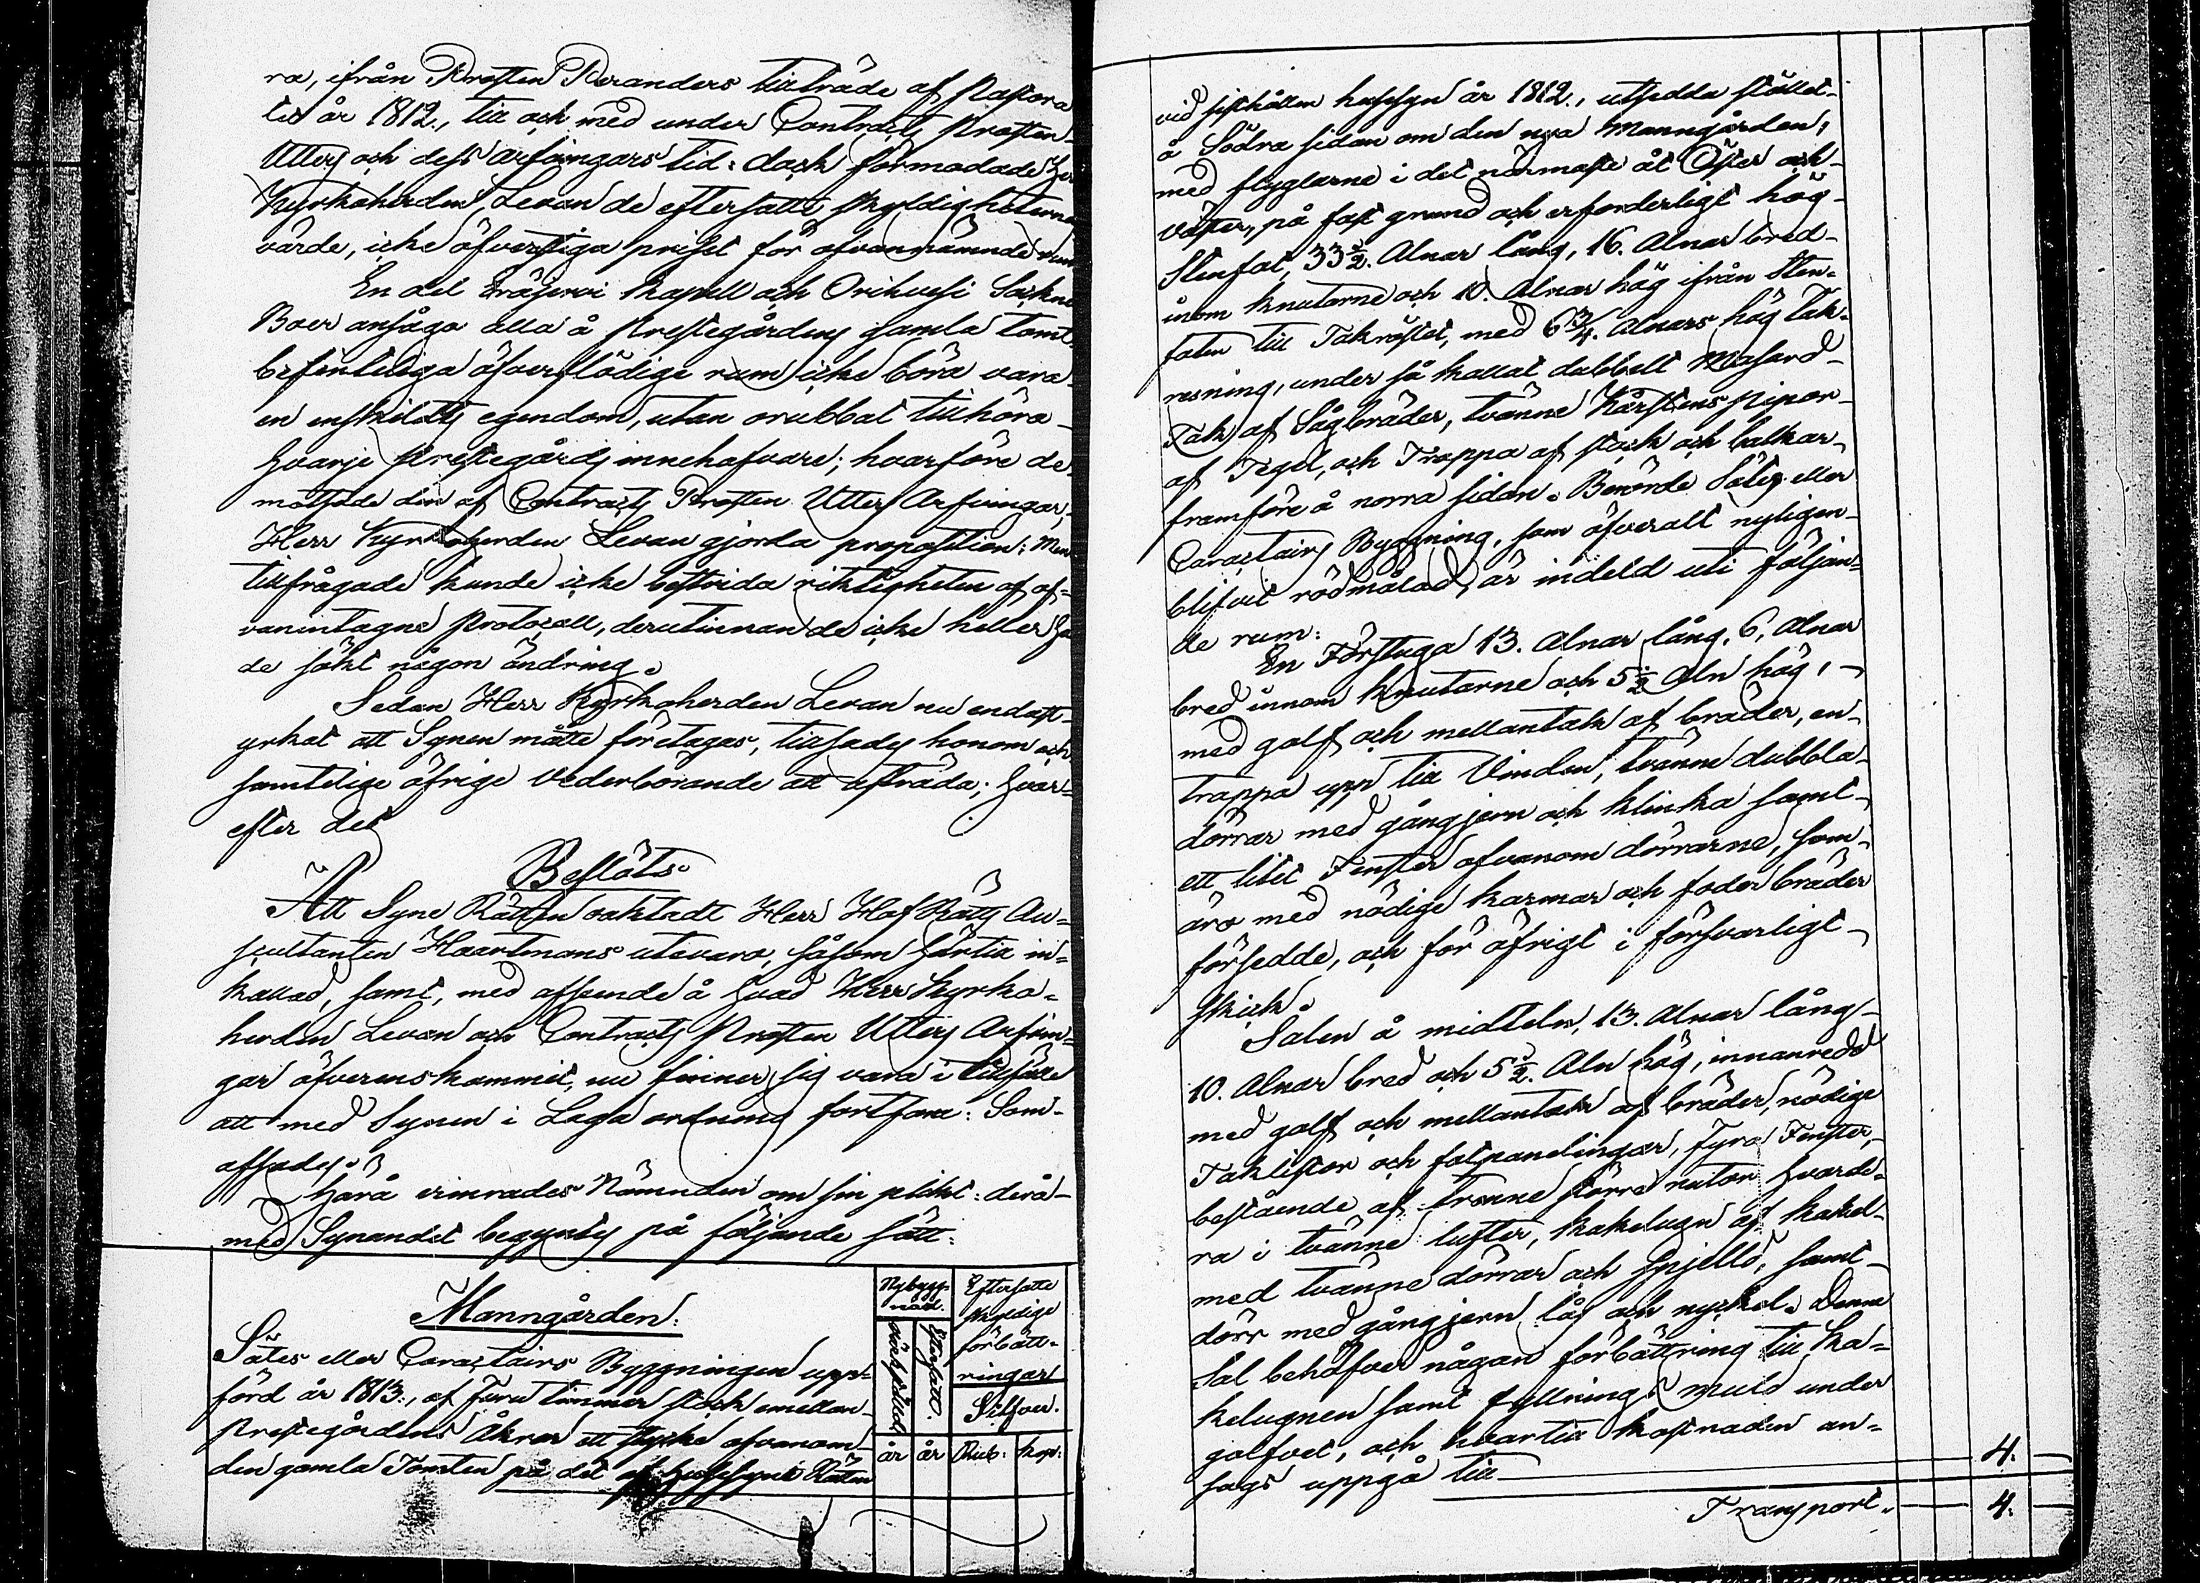 ra, ifrån Prosten Peranders tillträde af Pastora
tet år 1812., till och med under Contracts Prosten
Utters och dess arfvingars tid: dock förmodade Herr
Kyrkoherden Levan de eftersatte skyldigheternas
värde, icke öfverstiga priset för ofvannämnde rum
En del Eräjervi Kapell och Orihvesi Sockne
Boer ansågo alla å Prestegårdens gamla tomt
befinteliga öfverflödige rum icke böra vara
en enskildts egendom, utan orubbat tillhöra
hvarje Prestegårds innehafvare; hvarföre de
motsade den af Contracts Prosten Utters Arfvingar,
Herr Kyrkoherden Levan gjorda proposition: Men
tillfrågade kunde icke bestrida riktigheten af of-
vanintagne Protocoll, derutinnan de icke heller ha
de sökt någon ändring.
Sedan Herr Kyrkoherden Levan nu endast
yrkat att Synen måtte företagas, tillsades honom och
samtelige öfrige vederbörande att afträda; hvar-
efter det
Beslöts
Att Syne Rätten oaktadt Herr Hof Rätts Au-
scultanten Haartmans utevaro, såsom härtill in-
kallad, samt, med afseende å hvad Herr Kyrko-
herden Levan och Contracts Prosten Utters Arfvin-
gar öfverenskommit, nu finner sig vara i tillfälle
att med Synen i Laga ordning fortfara: Som
afsades.
Härå erinrades Nämnden om sin plikt: derå
med Synandet begynts på följande sätt:
Manngården.
Nybygg-
nad.
Eftersatte
skyldige
förbätt-
ringar
Silfver.
Eftersatt.
år år Rub: Kop:
Sätes eller Caractairs Byggningen upp-
förd år 1813., af Furu timmer stock emellan
Prestegårdens Åkrar ett stycke ofvanom
den gamla Tomten på det af Husesyns Rätten
vid sisthållen husesyn år 1812., utsedda stället
å Södra sidan om den nya Manngården,
med flyglarne i det närmaste åt Öster och
väster, på fast grund och erforderligt hög
Stenfot, 33½. Alnar lång, 16. Alnar bred
inom knutarne och 10. Alnar hög ifrån Sten-
foten till Takröstet, med 6¾. Alnars hög Tak-
resning, under så kallat dubbelt Masard
Tak af Sågbräder, tvänne Skårstens pipor
af Tegel, och Trappa af stock och balkar
framföre å norra sidan. Berörde Sätes eller
Caractairs Byggning, som öfveralt nyligen
blifvit rödmålad, är indeld uti följan-
de rum:
En Förstuga 13. Alnar lång, 6, Alnar
bred innom knutarne och 5½ Aln hög,
med golf och mellantak af bräder, en
trappa upp till Vinden, tvänne dubbla
dörrar med gångjern och klinka samt
ett litet Fenster ofvanom dörrarne, som
äro med nödige karmar och foder bräder
försedde, och för öfrigt i försvarligt
skick.
Salen å midteln, 13. Alnar lång
10. Alnar bred och 5½. Aln hög, innanredd
med golf och mellantak af bräder, nödige
Taklistor och fotpanelingar, Fyra Fenster,
bestående af trenne större rutor hvarde-
ra i tvänne lufter, kakelugn af kakel
med tvänne dörrar och Spjelld, samt
dörr med gångjern lås och nyckel. Denne
Sal behöfver någon förbättring till Ka-
kelugnen samt fyllnings muld under
golfvet, och hvartill kostnaden an-
sågs uppgå till 4.
Transport. 4.